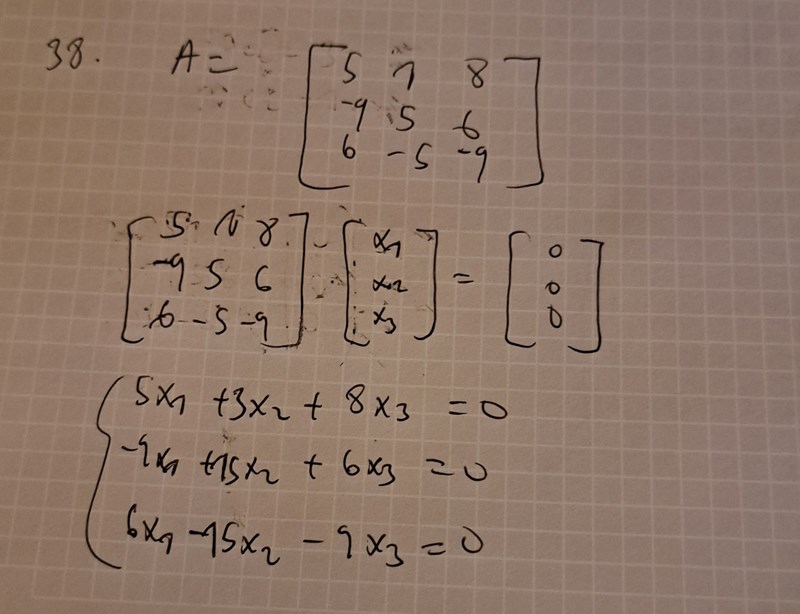 38. A = [ 5 1 8
-9 5 6
6 -5 -9 ]
[ 5 1 8
-9 5 6
6 -5 -9 ] · [ x1
x2
x3 ] = [ 0
0
0 ]
{ 5x1 + 3x2 + 8x3 = 0
-9x1 + 15x2 + 6x3 = 0
6x1 - 15x2 - 9x3 = 0